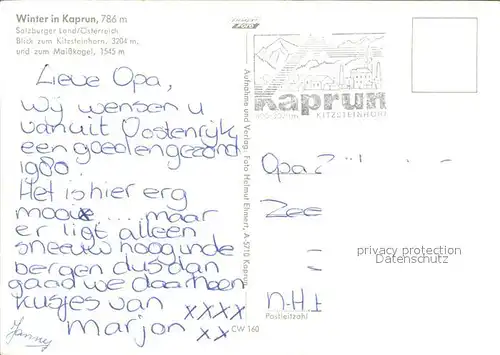 Winter in Kaprun, 786 m
Salzburger Land/Österreich
Blick zum Kitzsteinhorn, 3204 m,
und zum Maißkogel, 1545 m
Lieve Opa,
Wij wensen u
vanuit Oostenrijk
een goed en gezond
1980.
Het is hier erg
mooi..... maar
er ligt alleen
sneeuw hoog in de
bergen dus dan
gaad we daarheen
kusjes van
Marjon xxxx
xx
Janny
CW 160
Aufnahme und Verlag: Foto Helmut Ehnert, A-5710 Kaprun
Kaprun
KITZSTEINHORN
Opa
Zee
N-H
Postleitzahl
privacy protection
Datenschutz